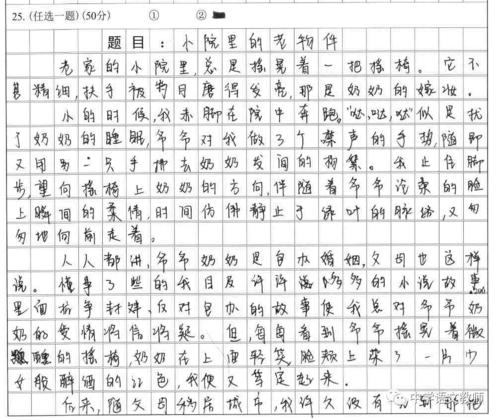 25. (任选一题) (50分) ① ②
题目：小院里的老物件
老家的小院里，总是摇晃着一把摇椅。它不
算精细，扶手被岁月磨得发亮，那是奶奶的嫁妆。
小的时候，我赤脚在院中奔跑。"哒，哒，哒"似是扰
了奶奶的睡眠，爷爷对我做了个禁声的手势，随即
又用另一只手拂去奶奶发间的柳絮。我止住脚
步，望向摇椅上奶奶的方向，伴随着爷爷沧桑的脸
上瞬间的柔情，时间仿佛静止于绿叶的脉络，又匆
匆地向前走着。
人人都讲，爷爷奶奶是包办婚姻，父母也这样
说。懂事了些的我目及许许多多的小说故事
里面抗争封建，反对包办的故事使我总对爷爷奶
奶的爱情将信将疑。但，每每看到爷爷摇晃着微
醺的摇椅，奶奶在上面轻笑，脸颊上荣了一片少
女般醉酒的红色，我便又笃定起来。
后来，随父母移居城中，我许久没有
中学语文教师